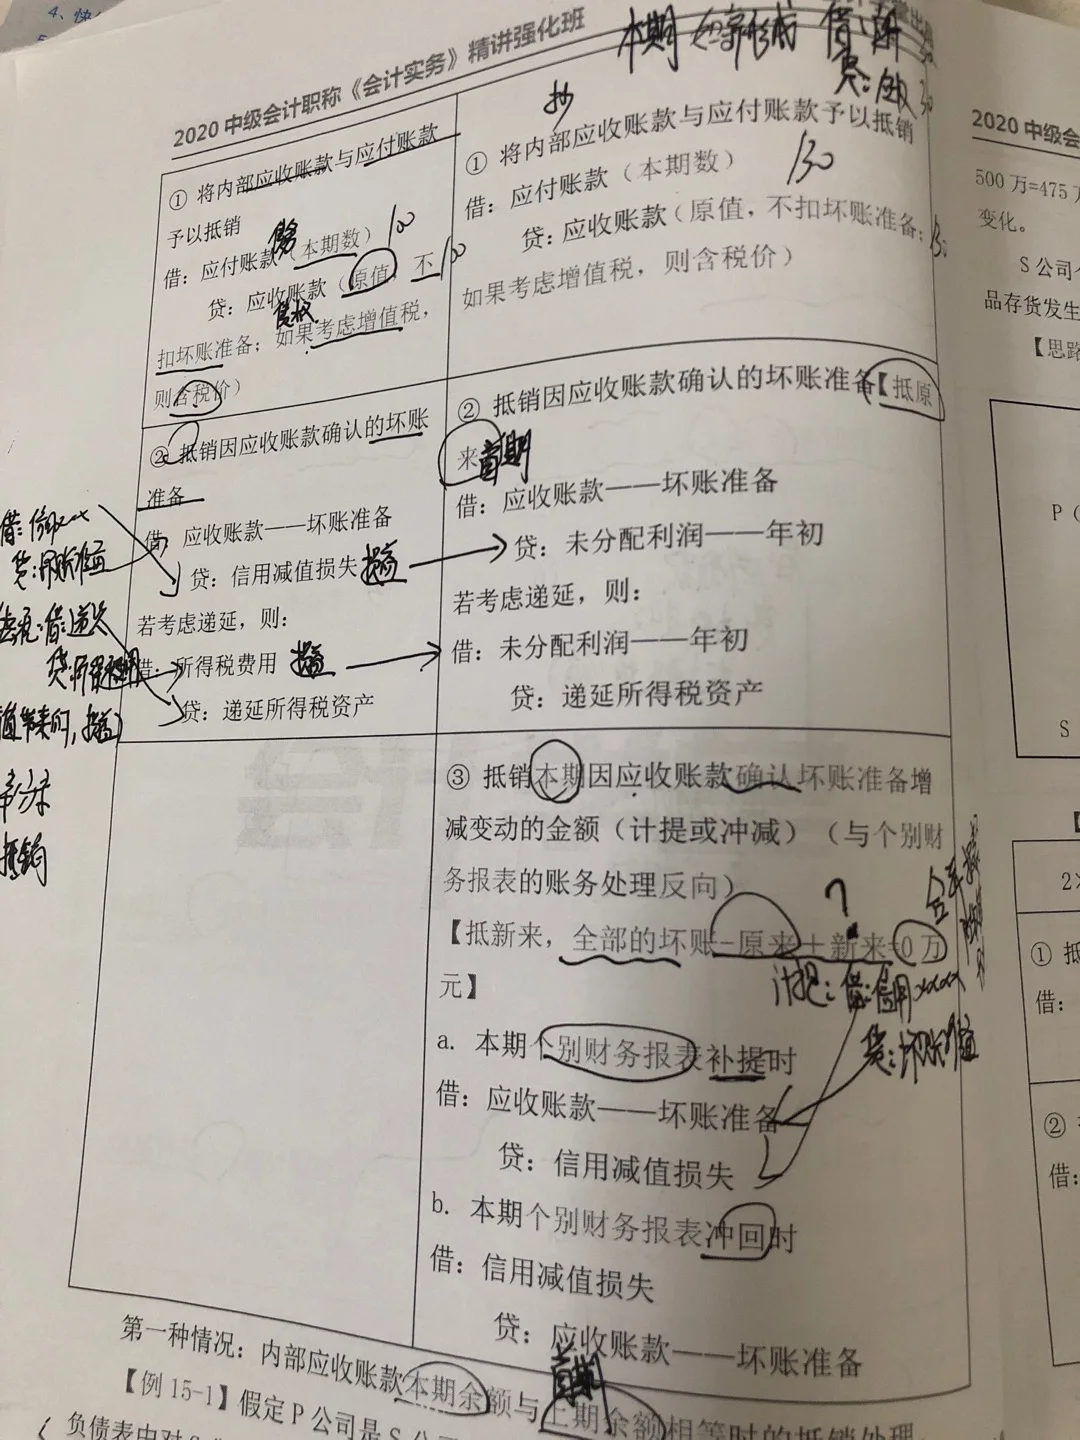 4、快
2020 中级会计职称《会计实务》精讲强化班
本期 新形成 借:
贷:
抄
① 将内部应收账款与应付账款
予以抵销
借：应付账款（本期数） 100
贷：应收账款（原值，不 100
扣坏账准备；如果考虑增值税，
则含税价）
① 将内部应收账款与应付账款予以抵销
借：应付账款（本期数） 130
贷：应收账款（原值，不扣坏账准备； 130
如果考虑增值税，则含税价）
② 抵销因应收账款确认的坏账
准备
借：应收账款——坏账准备
贷：信用减值损失 损益
若考虑递延，则：
借：所得税费用 损益
贷：递延所得税资产
② 抵销因应收账款确认的坏账准备【抵原
来 首期
借：应收账款——坏账准备
贷：未分配利润——年初
若考虑递延，则：
借：未分配利润——年初
贷：递延所得税资产
借: 信用xx
贷:坏账准备
抵销
③ 抵销本期因应收账款确认坏账准备增
减变动的金额（计提或冲减）（与个别财
务报表的账务处理反向）
【抵新来，全部的坏账-原来＋新来=0 万
元】
?
计提: 借:信用xxxx
贷:坏账准备
a. 本期个别财务报表补提时
借：应收账款——坏账准备
贷：信用减值损失
b. 本期个别财务报表冲回时
借：信用减值损失
贷：应收账款——坏账准备
第一种情况：内部应收账款本期余额与上期余额相等时的抵销处理
首期
【例 15-1】假定 P 公司是 S 公
负债表中对
2020 中级会
500 万=475 万
变化。
S 公司
品存货发生
【思路
P（
S
【
2×
① 抵
借：
②
借：